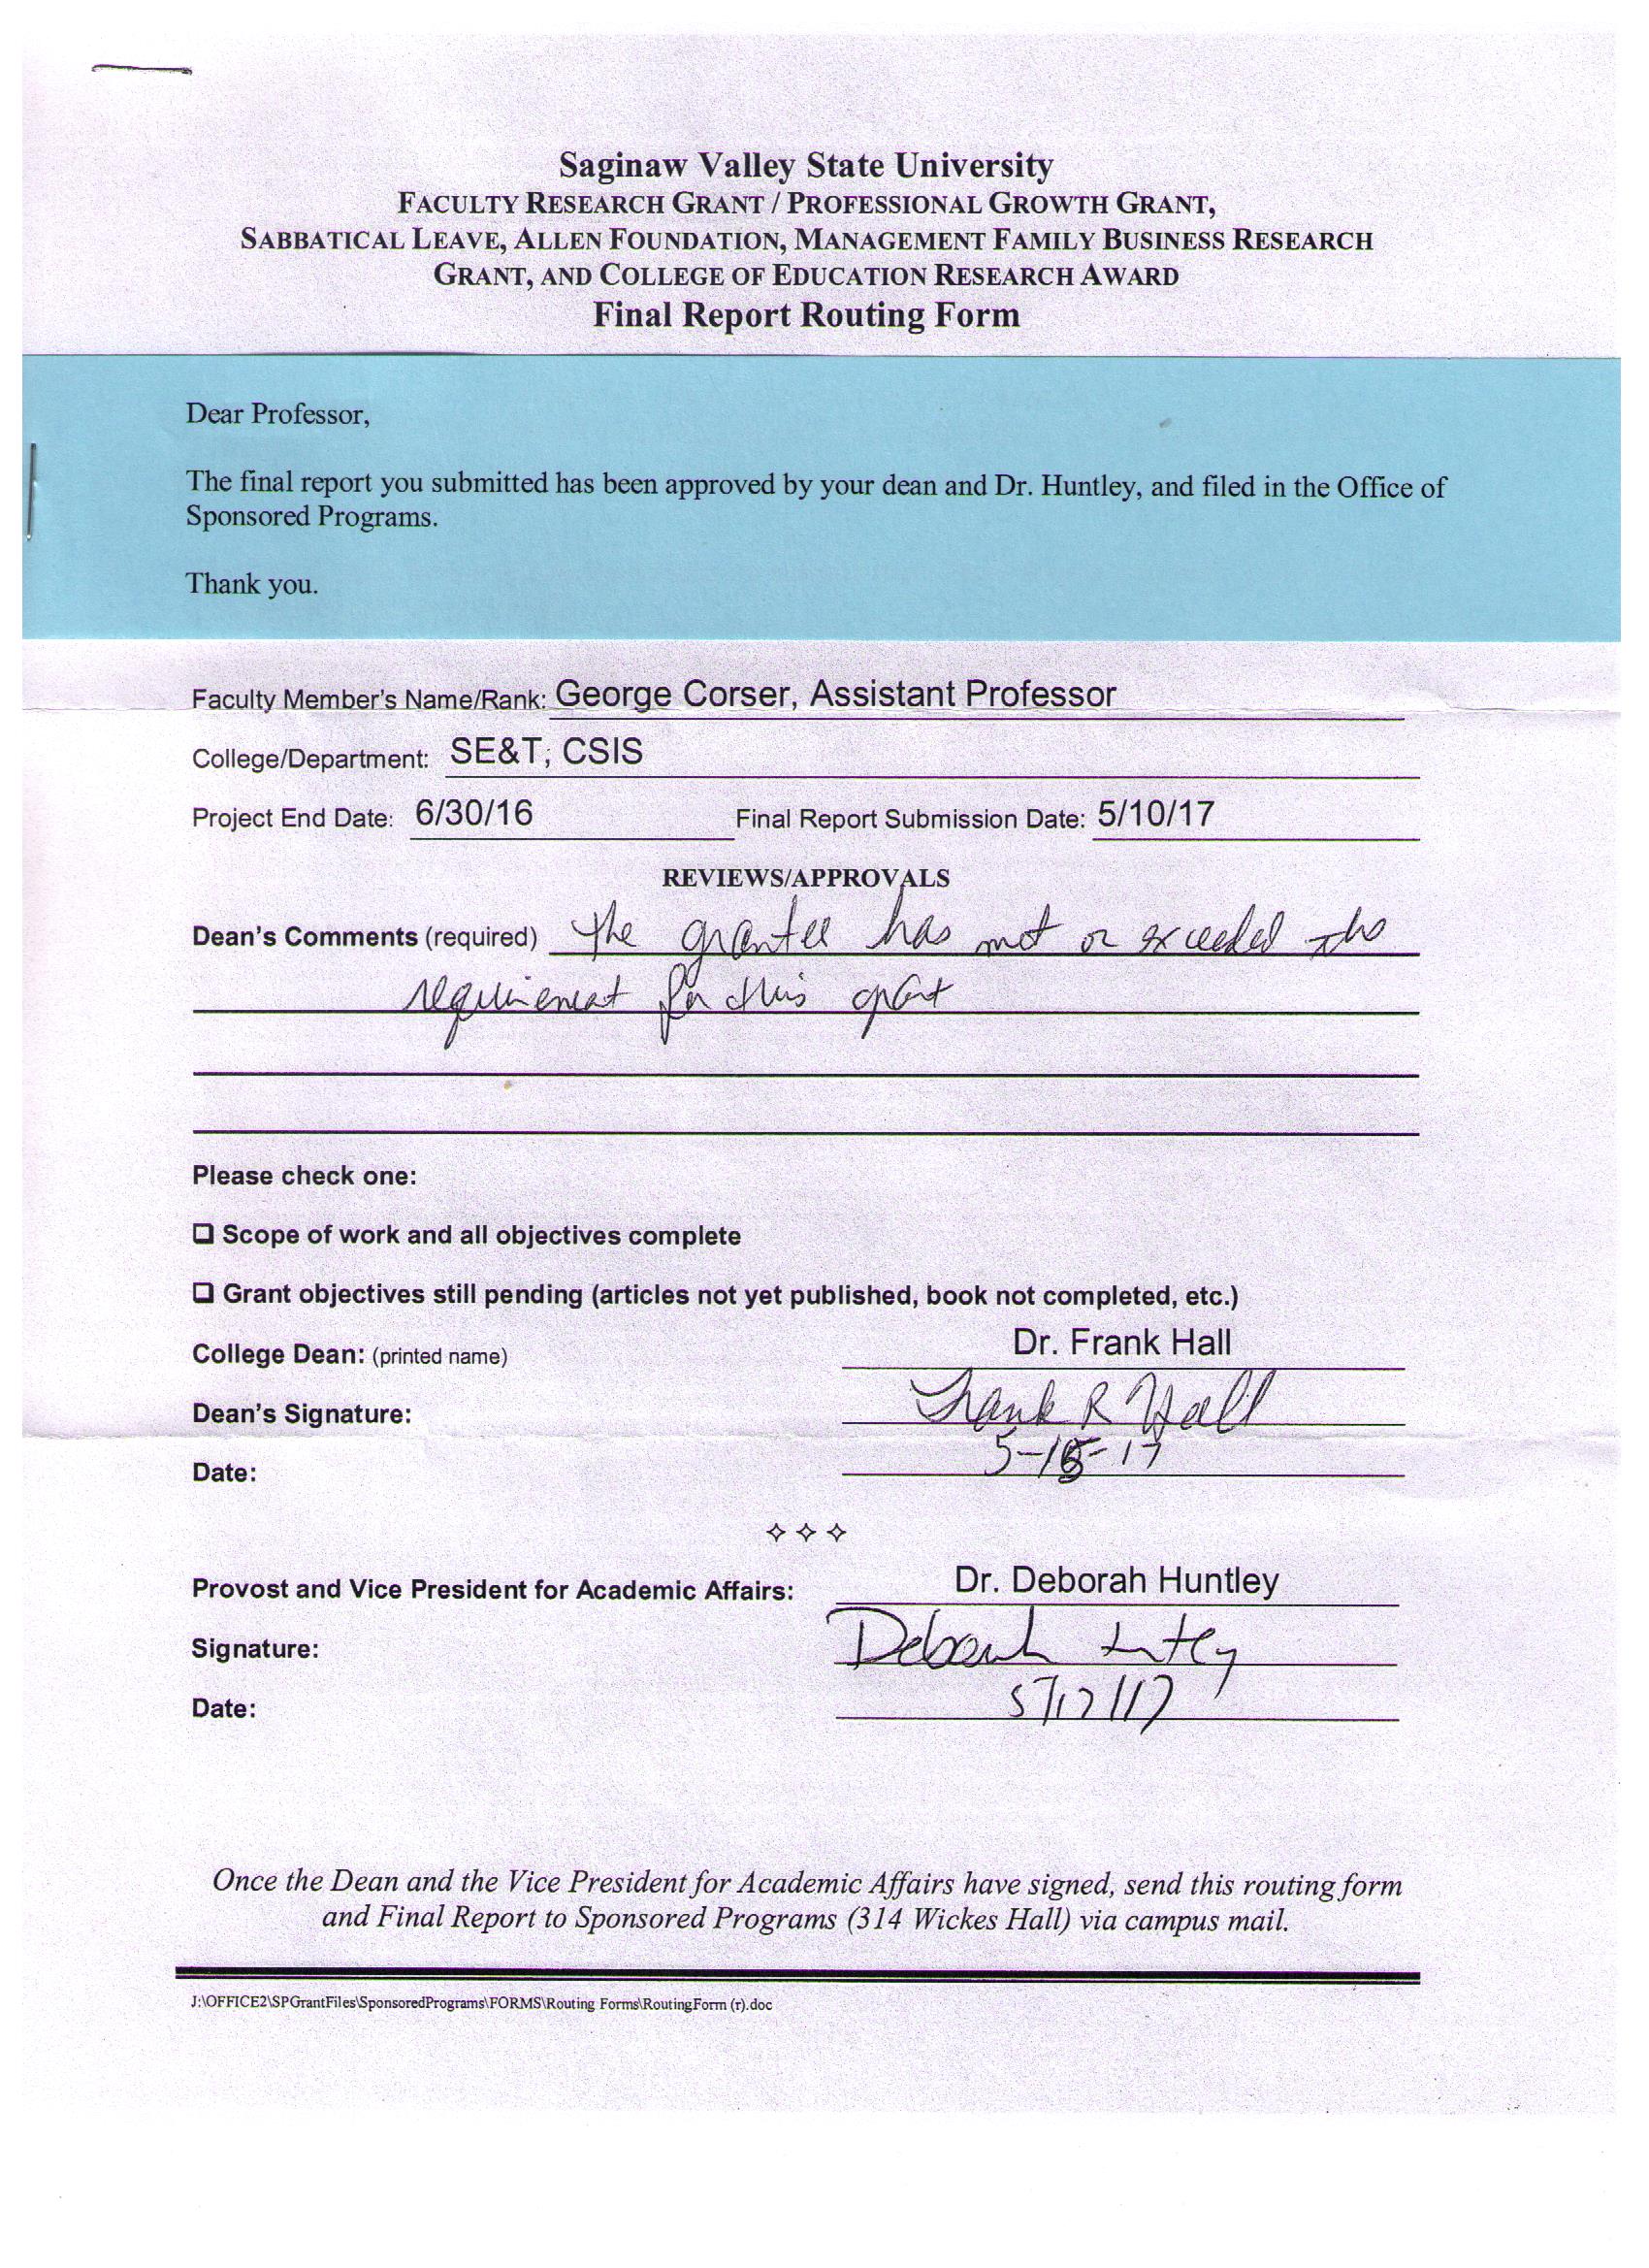 Saginaw Valley State University
FACULTY RESEARCH GRANT / PROFESSIONAL GROWTH GRANT,
SABBATICAL LEAVE, ALLEN FOUNDATION, MANAGEMENT FAMILY BUSINESS RESEARCH
GRANT, AND COLLEGE OF EDUCATION RESEARCH AWARD
Final Report Routing Form
Dear Professor,
The final report you submitted has been approved by your dean and Dr. Huntley, and filed in the Office of
Sponsored Programs.
Thank you.
Faculty Member's Name/Rank: George Corser, Assistant Professor
College/Department: SE&T; CSIS
Project End Date: 6/30/16 Final Report Submission Date: 5/10/17
REVIEWS/APPROVALS
Dean's Comments (required) The grantee has met or exceeded the
requirement for this grant
Please check one:
❑ Scope of work and all objectives complete
❑ Grant objectives still pending (articles not yet published, book not completed, etc.)
College Dean: (printed name) Dr. Frank Hall
Dean's Signature: Frank R Hall
Date: 5-   -17
✧ ✧ ✧
Provost and Vice President for Academic Affairs: Dr. Deborah Huntley
Signature: Deborah Huntley
Date: 5/17/17
Once the Dean and the Vice President for Academic Affairs have signed, send this routing form
and Final Report to Sponsored Programs (314 Wickes Hall) via campus mail.
J:\OFFICE2\SPGrantFiles\SponsoredPrograms\FORMS\Routing Forms\RoutingForm (r).doc